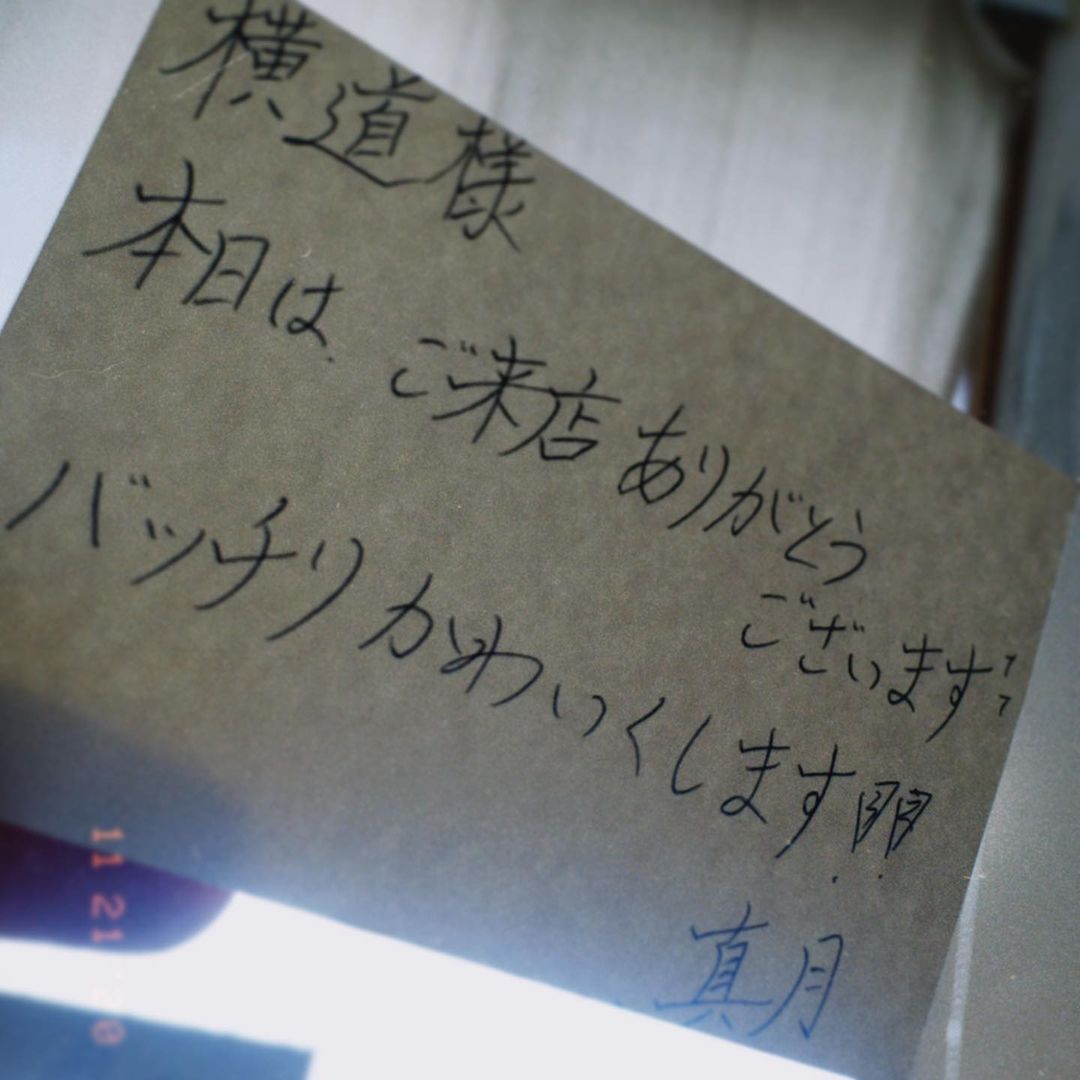 横道様
本日は ご来店ありがとう
ございます
バッチリかわいくします!!
真月
11 21 '20